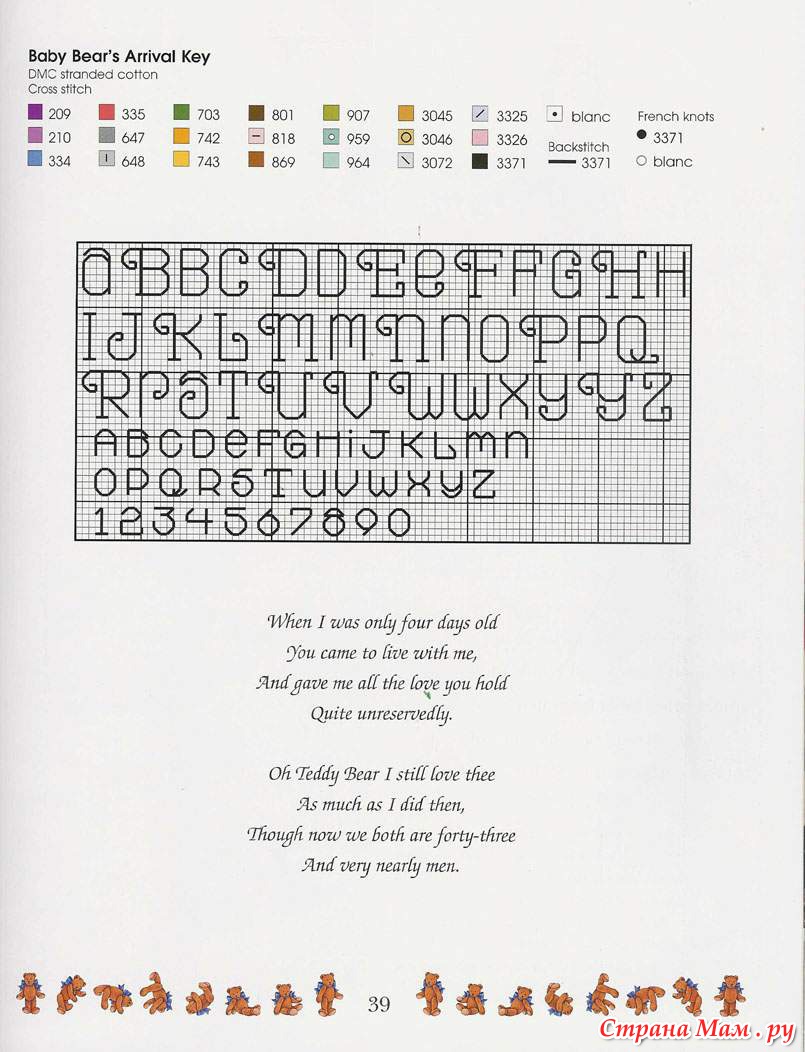 Baby Bear's Arrival Key
DMC stranded cotton
Cross stitch
209 335 703 801 907 3045 3325 blanc French knots
210 647 742 818 959 3046 3326 Backstitch 3371
334 648 743 869 964 3072 3371 3371 blanc
a B B C D D E e F F G H H
I J K L M M N N O P P Q
R R S T U V W W X Y Y Z
A B C D e F G H i J K L m n
O P Q R S T U V W X Y Z
1 2 3 4 5 6 7 8 9 0
When I was only four days old
You came to live with me,
And gave me all the love you hold
Quite unreservedly.
Oh Teddy Bear I still love thee
As much as I did then,
Though now we both are forty-three
And very nearly men.
39
Страна Мам . ру